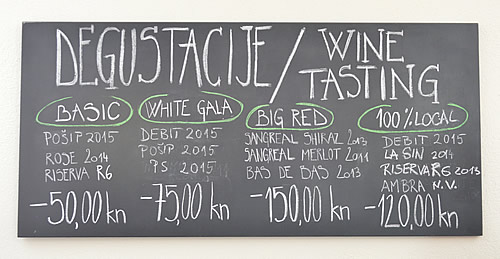 DEGUSTACIJE/ WINE
TASTING
BASIC
POŠIP 2015
ROSE 2014
RISERVA R6
-50,00 kn
WHITE GALA
DEBIT 2015
POŠIP 2015
PS 2015
-75,00 kn
BIG RED
SANGREAL SHIRAZ 2013
SANGREAL MERLOT 2011
BAS DE BAS 2013
-150,00 kn
100% LOCAL
DEBIT 2015
LA SIN 2014
RISERVA R6 2013
AMBRA N.V.
-120,00 kn